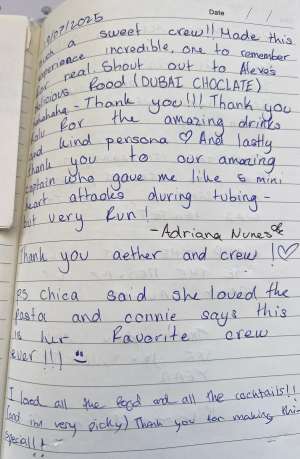 Date
/07/2025
such a sweet crew!! Made this
experience incredible, one to remember
for real. Shout out to Aleve's
delicious food (DUBAI CHOCLATE)
hahaha - Thank you!!! Thank you
for the amazing drinks
and kind persona ♡ And lastly
thank you to our amazing
captain who gave me like 5 mini
heart attacks during tubing -
but very fun!
- Adriana Nunes
Thank you aether and crew !♡
PS chica said she loved the
pasta and connie says this
is her favorite crew
ever!!!
I loved all the food and all the cocktails!!
(and im very picky) Thank you for making this
special!!